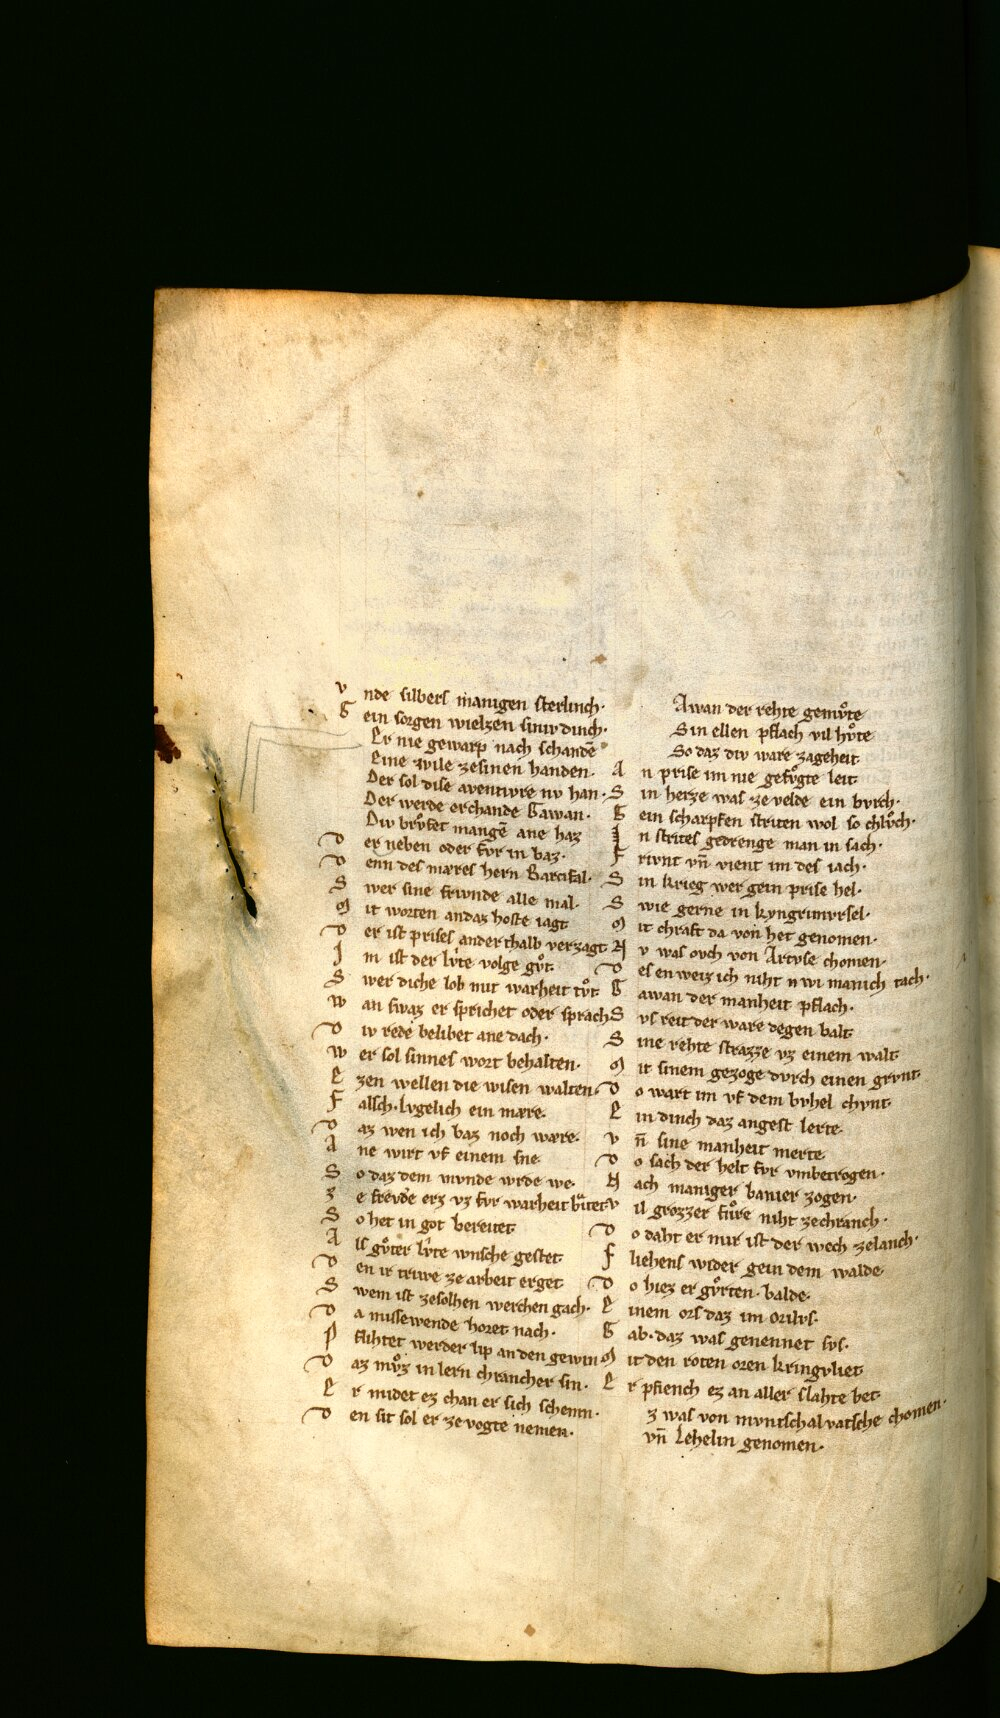 v nde silbers manigen sterlinch·
G ein sorgen wielzen siniv dinch·
Er nie gewarp nach schande
Eine wile zesinen handen·
Der sol dise aventivre nv han·
Der werde erchande Gawan·
Div brvͦfet mangē ane haz
D er neben oder fvr in baz·
D enn des mæres hern Parcifal·
S wer sine frivnde alle mal·
M it worten andaz hoste iagt
D er ist prises anderthalb verzagt
I m ist der lvͥte volge gvͦt·
S wer diche lob mit warheit tvͦt·
W an swaz er sprichet oder sprach
D iv rede belibet ane dach·
W er sol sinnes wort behalten·
E zen wellen die wisen walten·
F alsch·lvgelich ein mære·
D az wen ich baz noch wære·
A ne wirt vf einem sne·
S o daz dem mvnde wrde we·
Z e frevde erz vz fvr warheit bv̂tet
S o het in got bereitet
A ls gvͦter lvͥte wnsche gestet
D en ir triwe ze arbeit erget
S wem ist zesolhen werchen gach·
D a missewende horet nach·
P flihtet werder lip an den gewin
D az mvͦz in lern chrancher sin·
E r midet ez chan er sich schemn·
D en sit sol er ze vogte nemen·
Awan der rehte gemvͦte
Sin ellen pflach vil hvͦte
So daz div ware zageheit
A n prise im nie gefvͦgte leit
S in herze was·ze velde ein bvrch·
G ein scharpfen striten wol so chlvͦch·
I n strites gedrenge man in sach·
F rivnt vn̄ vient im des iach·
S in krieg wer gein prise hel·
S wie gerne in kyngrimvrsel·
M it chraft da von het genomen·
N v was ovch von Artvse chomen·
D es en weiz ich niht n wi manich tach·
G awan der manheit pflach·
S vs reit der ware degen balt
S ine rehte strazze vz einem walt
M it sinem gezoge dvrch einen grvnt
D o wart im vf dem bvhel chvnt·
E in dinch daz angest lerte
v n̄ sine manheit merte
D o sach der helt fvr vmbetrogen·
N ach maniger banier zogen·
v il grozzer fuͦre niht zechranch·
D o daht er mir ist der wech zelanch·
F liehens wider gein dem walde
D o hiez er gvͦrten·balde·
E inem ors daz im orilvs·
G ab·daz was genennet svs·
M it den roten oren kringvliet
E r pfiench ez an aller slahte bet
z was von mvntschalvatsche chomen·
vn̄ Lehelin genomen·